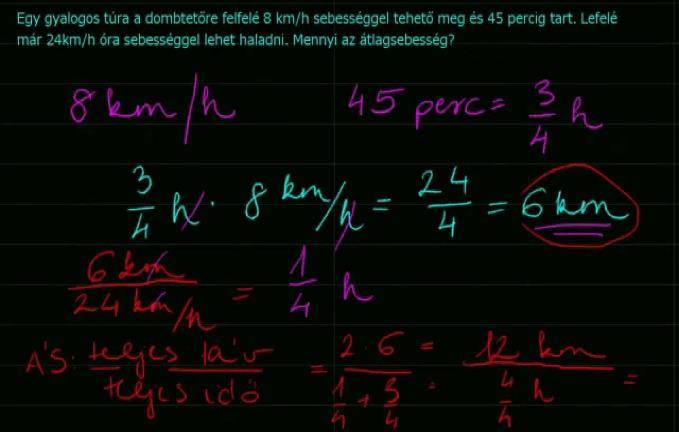 Egy gyalogos túra a dombtetőre felfelé 8 km/h sebességgel tehető meg és 45 percig tart. Lefelé
már 24km/h óra sebességgel lehet haladni. Mennyi az átlagsebesség?
8 km/h 45 perc = 3/4 h
3/4 h · 8 km/h = 24/4 = 6 km
6 km / 24 km/h = 1/4 h
ÁS: teljes táv / teljes idő = 2·6 / 1/4 + 3/4 = 12 km / 4/4 h =